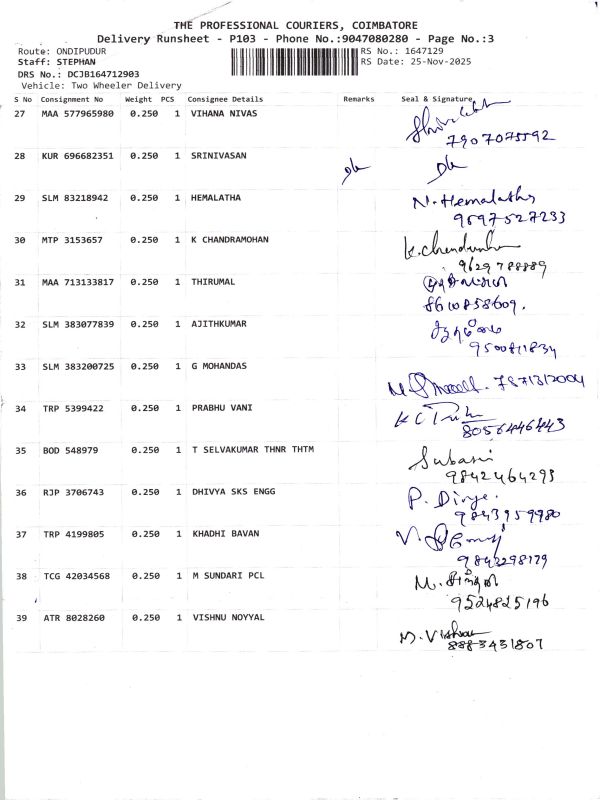 THE PROFESSIONAL COURIERS, COIMBATORE
Delivery Runsheet - P103 - Phone No.:9047080280 - Page No.:3
Route: ONDIPUDUR
RS No.: 1647129
Staff: STEPHAN
RS Date: 25-Nov-2025
DRS No.: DCJB164712903
Vehicle: Two Wheeler Delivery
S No Consignment No Weight PCS Consignee Details Remarks Seal & Signature
27 MAA 577965980 0.250 1 VIHANA NIVAS
7907075592
28 KUR 696682351 0.250 1 SRINIVASAN
29 SLM 83218942 0.250 1 HEMALATHA N. Hemalatha
9597527233
30 MTP 3153657 0.250 1 K CHANDRAMOHAN K. Chandramohan
9629788889
31 MAA 713133817 0.250 1 THIRUMAL
8610858609.
32 SLM 383077839 0.250 1 AJITHKUMAR
9500811834
33 SLM 383200725 0.250 1 G MOHANDAS 7871312004
34 TRP 5399422 0.250 1 PRABHU VANI
8056446443
35 BOD 548979 0.250 1 T SELVAKUMAR THNR THTM
9842464293
36 RJP 3706743 0.250 1 DHIVYA SKS ENGG P. Divye.
9843959980
37 TRP 4199805 0.250 1 KHADHI BAVAN
9842298179
38 TCG 42034568 0.250 1 M SUNDARI PCL
9524825196
39 ATR 8028260 0.250 1 VISHNU NOYYAL M. Vishnu
8883431807